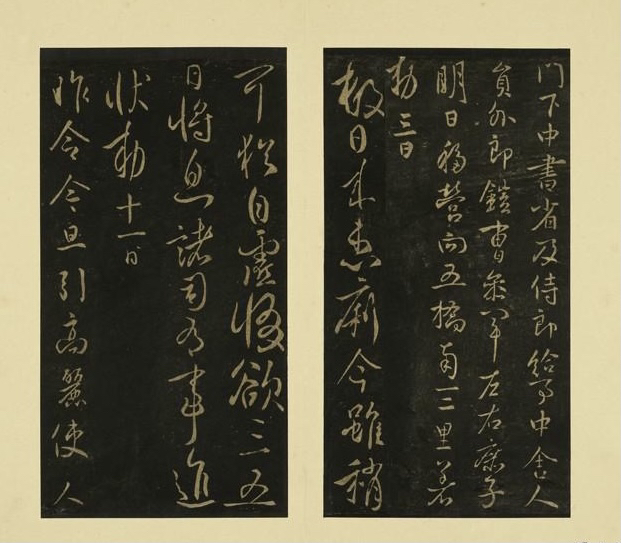 門下中書省及侍郎給事中舍人
員外郎鎧曹兵軍左右庶子
明日移營向五橋南一二里着
勑三日
敕日來患廁今雖稍
可猶自虛惙欲三五
日將息諸司有事進
狀勑十一日
昨令今旦引高麗使人